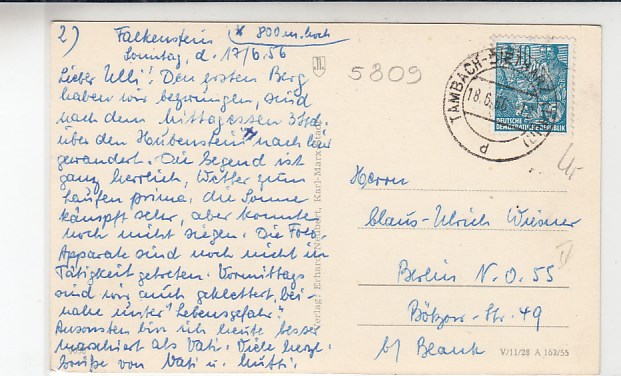 2) Falkenstein (* 800 m. hoch
Sonntag, d. 17/6.56
Lieber Ulli! Den ersten Berg
haben wir bezwungen, sind
nach dem Mittagessen 3 Std.
über den Haubenstein * nach hier
gewandert. Die Gegend ist
ganz herrlich, Wetter zum
Laufen prima, die Sonne
kämpft sehr, aber konnte
noch nicht siegen. Die Foto-
Apparate sind noch nicht in
Tätigkeit getreten. Vormittags
sind wir auch geklettert, bei-
nahe unter "Lebensgefahr".
Ansonsten bin ich heute besser
marschiert als Vati. Viele herzl.
Grüße von Vati u. Mutti.
Verlag: Erhard Neubert, Karl-Marx-Stadt
5809
TAMBACH-DIETHARZ
18.6.56
d
DEUTSCHE
DEMOKRATISCHE REPUBLIK
Herrn
Claus-Ulrich Wiesner
Berlin N.O. 55
Bötzow-Str. 49
b/ Blank
V/11/28 A 162/55